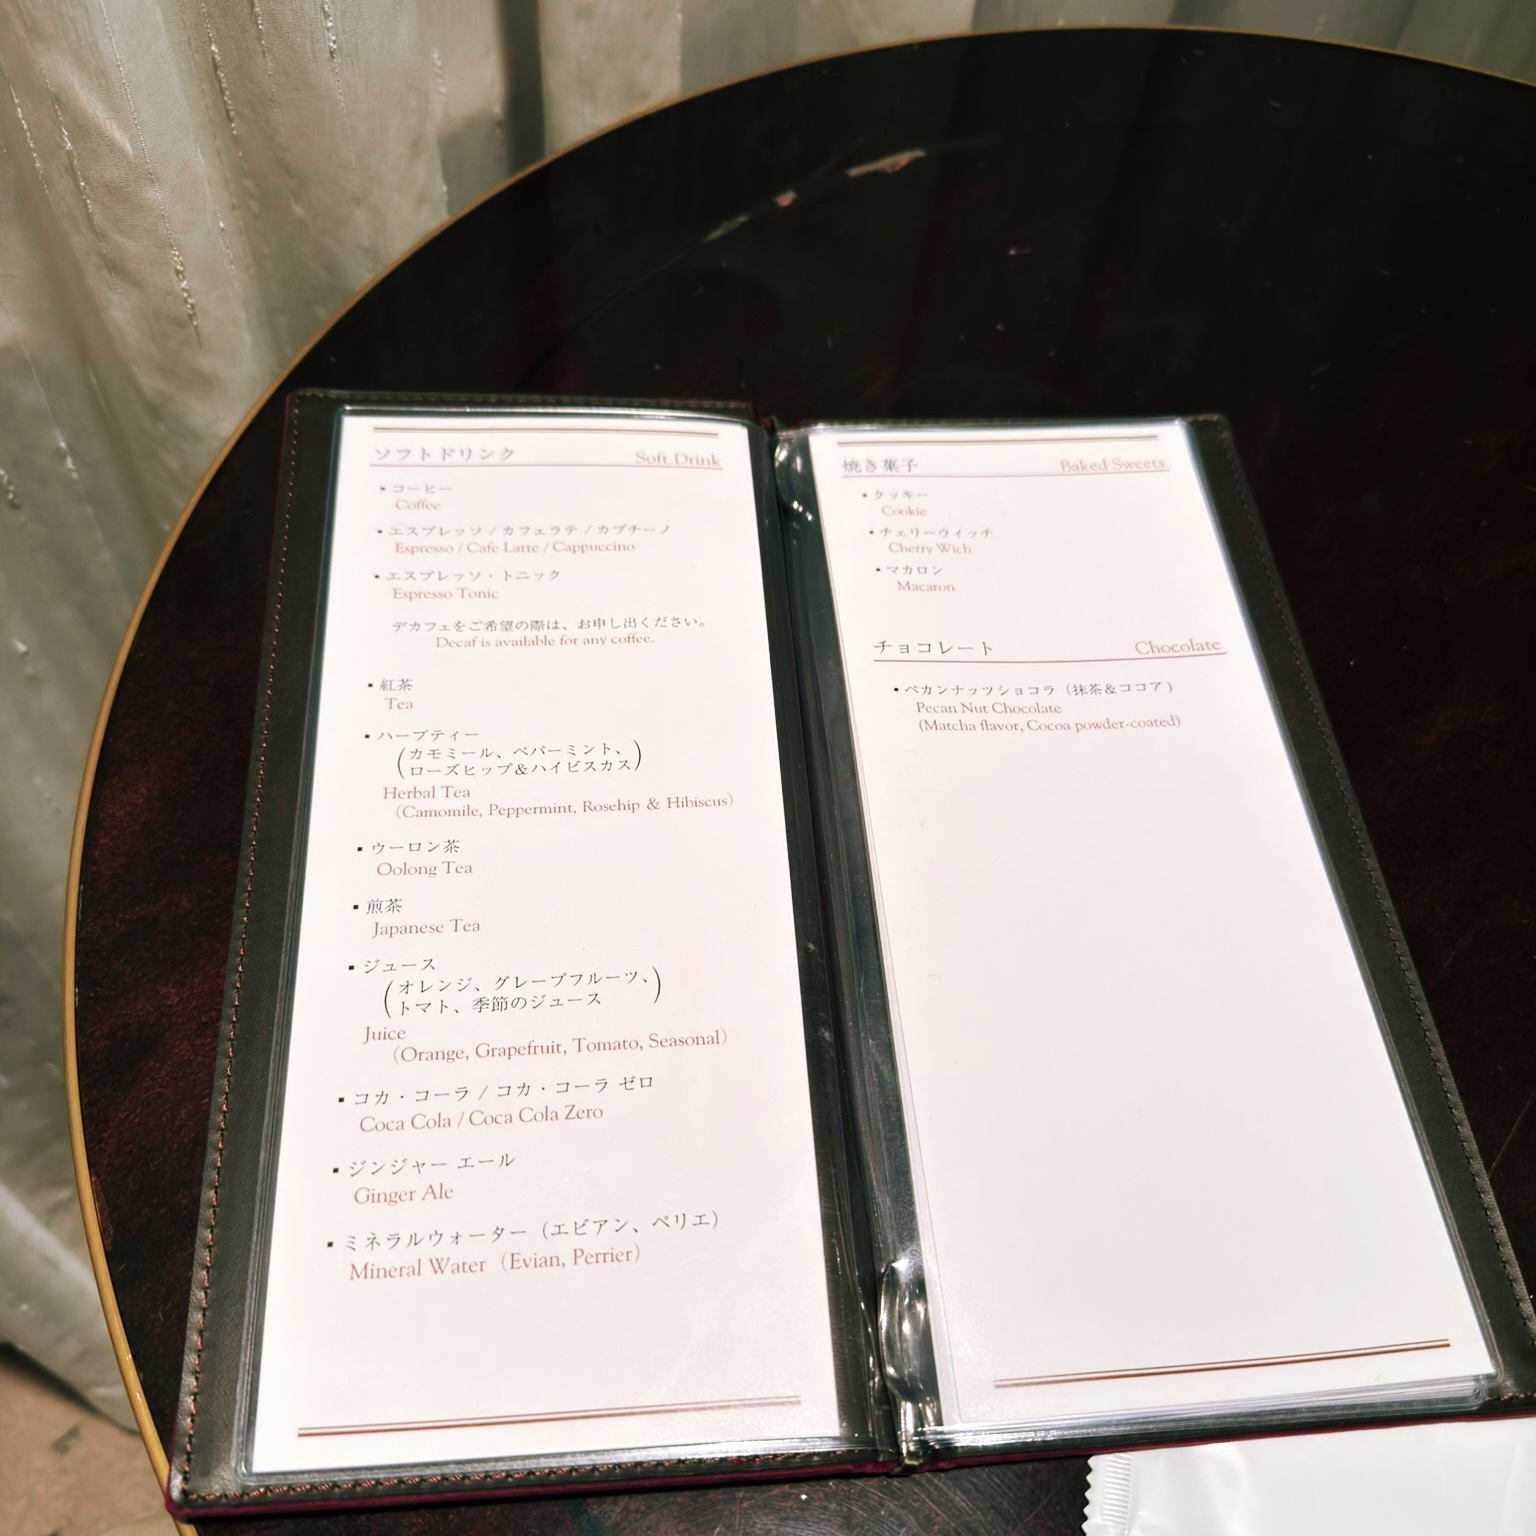 ソフトドリンク Soft Drink
▪ コーヒー
Coffee
▪ エスプレッソ / カフェラテ / カプチーノ
Espresso / Cafe Latte / Cappuccino
▪ エスプレッソ・トニック
Espresso Tonic
デカフェをご希望の際は、お申し出ください。
Decaf is available for any coffee.
▪ 紅茶
Tea
▪ ハーブティー
(カモミール、ペパーミント、
ローズヒップ＆ハイビスカス)
Herbal Tea
（Camomile, Peppermint, Rosehip & Hibiscus）
▪ ウーロン茶
Oolong Tea
▪ 煎茶
Japanese Tea
▪ ジュース
(オレンジ、グレープフルーツ、
トマト、季節のジュース)
Juice
（Orange, Grapefruit, Tomato, Seasonal）
▪ コカ・コーラ / コカ・コーラ ゼロ
Coca Cola / Coca Cola Zero
▪ ジンジャー エール
Ginger Ale
▪ ミネラルウォーター（エビアン、ペリエ）
Mineral Water（Evian, Perrier）
焼き菓子 Baked Sweets
▪ クッキー
Cookie
▪ チェリーウィッチ
Cherry Wich
▪ マカロン
Macaron
チョコレート Chocolate
▪ ペカンナッツショコラ（抹茶＆ココア）
Pecan Nut Chocolate
(Matcha flavor, Cocoa powder-coated)